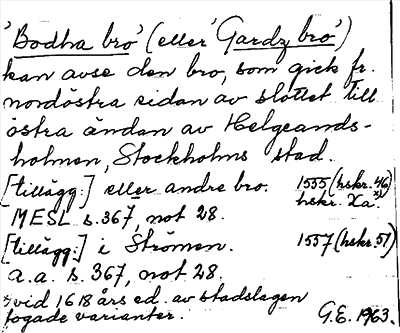 'Bodha bro' (eller 'Gardz bro')
kan avse den bro, som gick fr.
nordöstra sidan av slottet till
östra ändan av Helgeands-
holmen, Stockholms stad.
[tillägg:] eller andre bro. 1555 (hskr. 46)
MESL s. 367, not 28. hskr. Xa. x)
[tillägg:] i Strömen. 1557 (hskr. 51)
a.a. s. 367, not 28.
x) vid 1618 års ed. av stadslagen
fogade varianter. G.E. 1963.